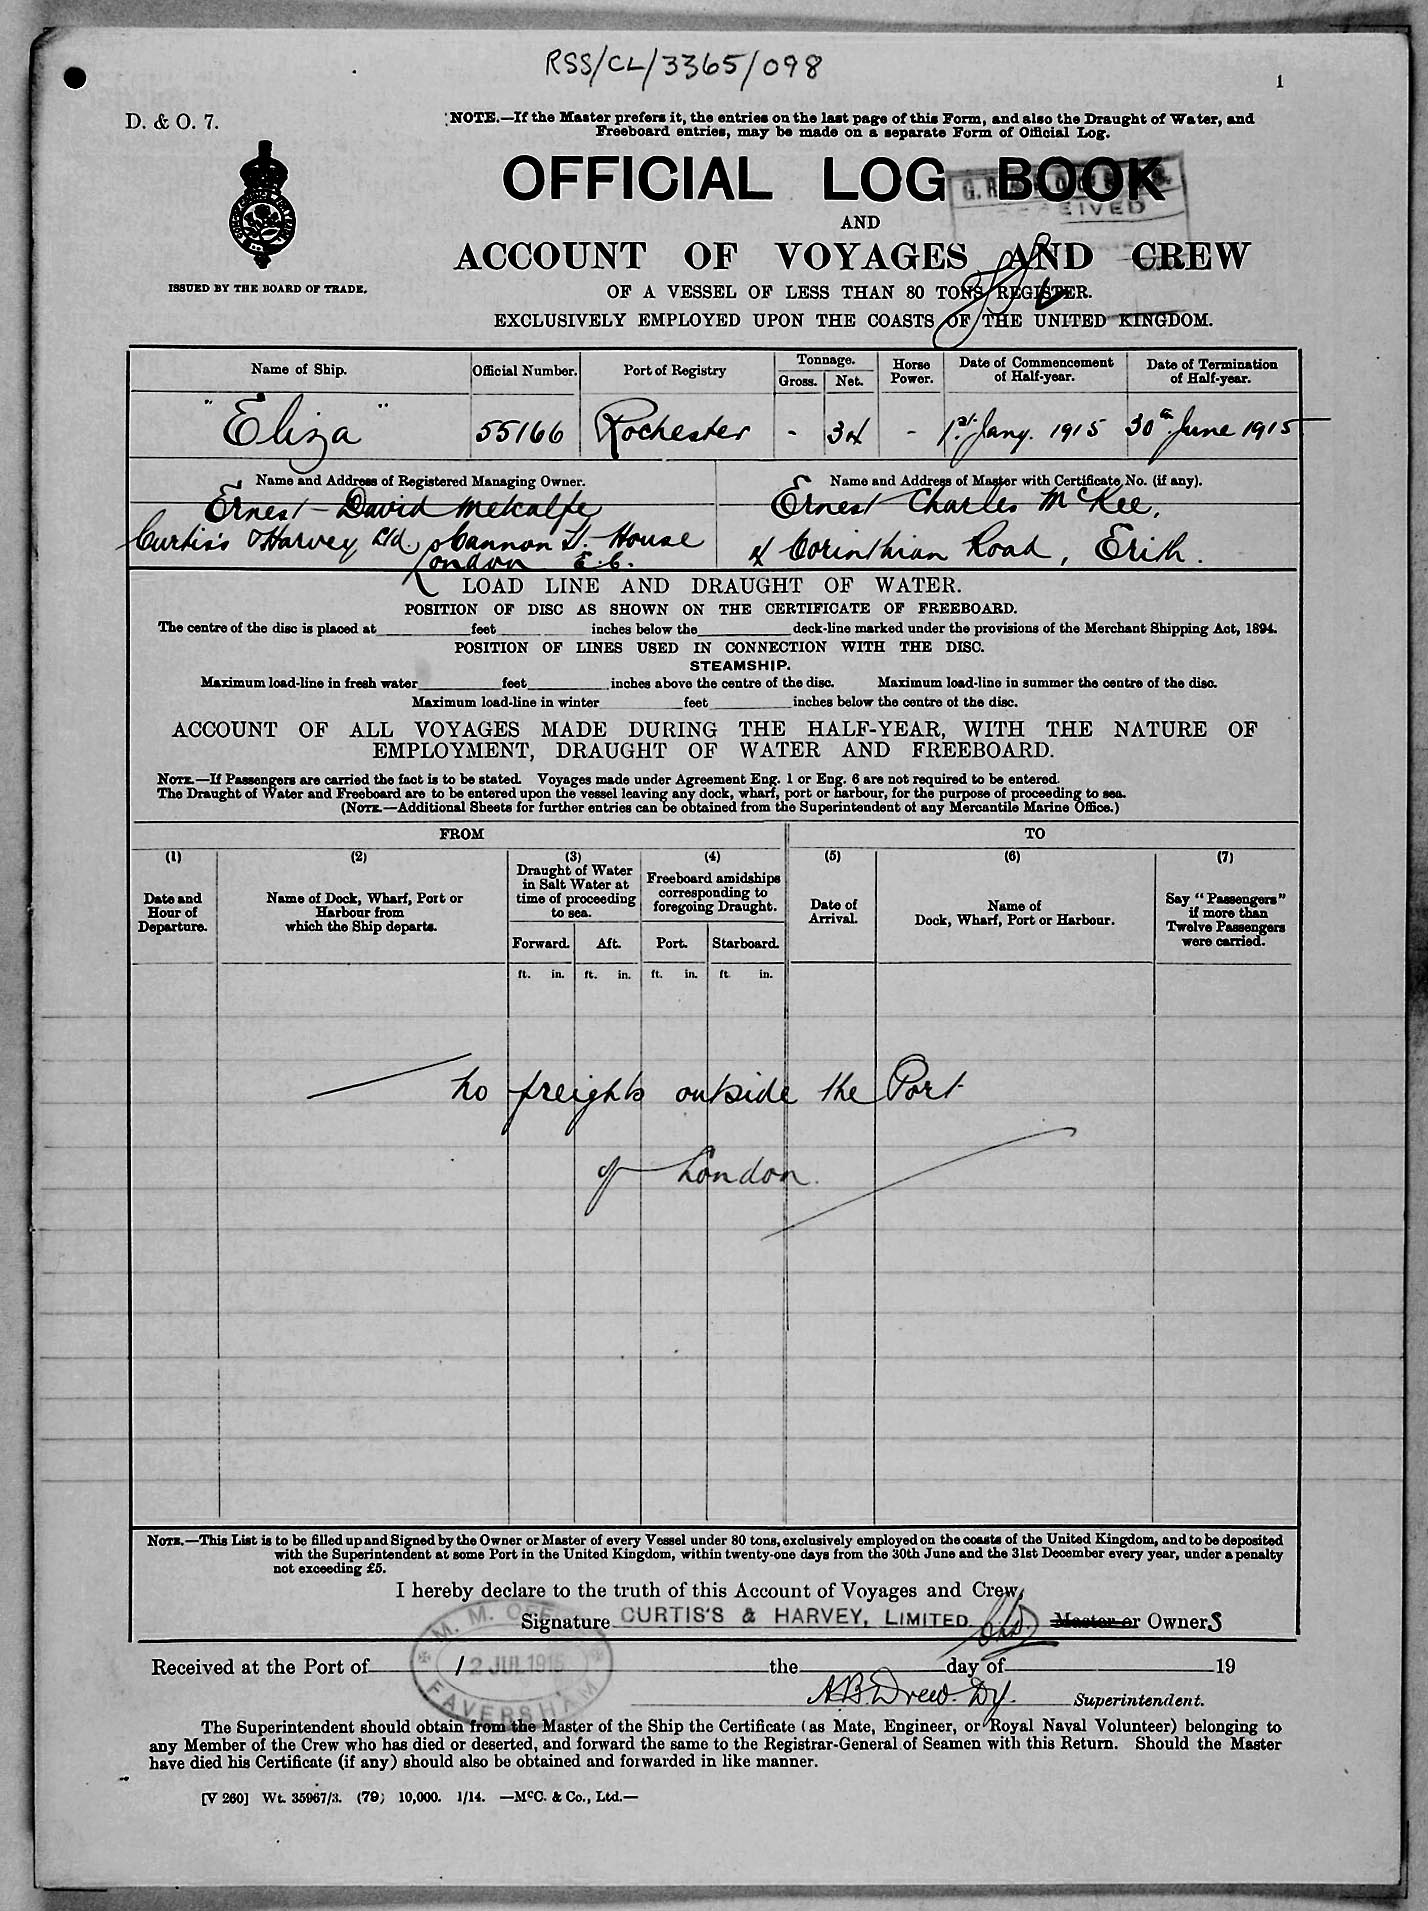 RSS/CL/3365/098
1
D. & O. 7.
NOTE.—If the Master prefers it, the entries on the last page of this Form, and also the Draught of Water, and
Freeboard entries, may be made on a separate Form of Official Log.
OFFICIAL LOG BOOK
RECEIVED
AND
ACCOUNT OF VOYAGES AND CREW
ISSUED BY THE BOARD OF TRADE.
OF A VESSEL OF LESS THAN 80 TONS REGISTER.
EXCLUSIVELY EMPLOYED UPON THE COASTS OF THE UNITED KINGDOM.
Name of Ship. Official Number. Port of Registry Tonnage. Gross. Net. Horse Power. Date of Commencement of Half-year. Date of Termination of Half-year.
"Eliza" 55166 Rochester - 34 - 1st Jany. 1915 30th June 1915
Name and Address of Registered Managing Owner. Name and Address of Master with Certificate No. (if any).
Ernest David Metcalfe Ernest Charles McKee,
Curtis's & Harvey Ltd. Cannon St. House 4 Corinthian Road, Erith.
London E.C.
LOAD LINE AND DRAUGHT OF WATER.
POSITION OF DISC AS SHOWN ON THE CERTIFICATE OF FREEBOARD.
The centre of the disc is placed at feet inches below the deck-line marked under the provisions of the Merchant Shipping Act, 1894.
POSITION OF LINES USED IN CONNECTION WITH THE DISC.
STEAMSHIP.
Maximum load-line in fresh water feet inches above the centre of the disc. Maximum load-line in summer the centre of the disc.
Maximum load-line in winter feet inches below the centre of the disc.
ACCOUNT OF ALL VOYAGES MADE DURING THE HALF-YEAR, WITH THE NATURE OF
EMPLOYMENT, DRAUGHT OF WATER AND FREEBOARD.
NOTE.—If Passengers are carried the fact is to be stated. Voyages made under Agreement Eng. 1 or Eng. 6 are not required to be entered.
The Draught of Water and Freeboard are to be entered upon the vessel leaving any dock, wharf, port or harbour, for the purpose of proceeding to sea.
(NOTE.—Additional Sheets for further entries can be obtained from the Superintendent of any Mercantile Marine Office.)
FROM TO
(1) (2) (3) (4) (5) (6) (7)
Date and Hour of Departure. Name of Dock, Wharf, Port or Harbour from which the Ship departs. Draught of Water in Salt Water at time of proceeding to sea. Freeboard amidships corresponding to foregoing Draught. Date of Arrival. Name of Dock, Wharf, Port or Harbour. Say "Passengers" if more than Twelve Passengers were carried.
Forward. Aft. Port. Starboard.
ft. in. ft. in. ft. in. ft. in.
no freights outside the Port
of London.
NOTE.—This List is to be filled up and Signed by the Owner or Master of every Vessel under 80 tons, exclusively employed on the coasts of the United Kingdom, and to be deposited
with the Superintendent at some Port in the United Kingdom, within twenty-one days from the 30th June and the 31st December every year, under a penalty
not exceeding £5.
I hereby declare to the truth of this Account of Voyages and Crew,
Signature CURTIS'S & HARVEY, LIMITED. Master or Owners
M. M. OFF
12 JUL 1915
FAVERSHAM
Received at the Port of the day of 19
A.B. Drew. Dy. Superintendent.
The Superintendent should obtain from the Master of the Ship the Certificate (as Mate, Engineer, or Royal Naval Volunteer) belonging to
any Member of the Crew who has died or deserted, and forward the same to the Registrar-General of Seamen with this Return. Should the Master
have died his Certificate (if any) should also be obtained and forwarded in like manner.
[V 260] Wt. 35967/3. (79) 10,000. 1/14. —McC. & Co., Ltd.—